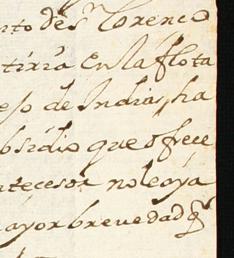 nto de sn Lorenco
tiria en la flota
ejo de Indias, ha
bsidio que ofrece
ntecesor no le aya
ayor breuedad q